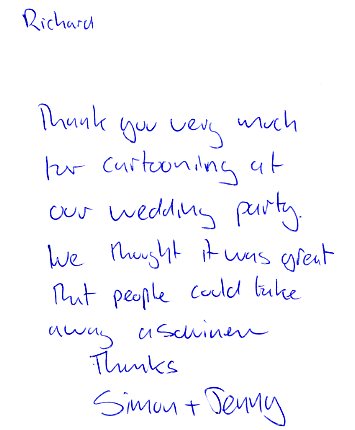 Richard
Thank you very much
for cartooning at
our wedding party.
We thought it was great
that people could take
away a
Thanks
Simon + Jenny